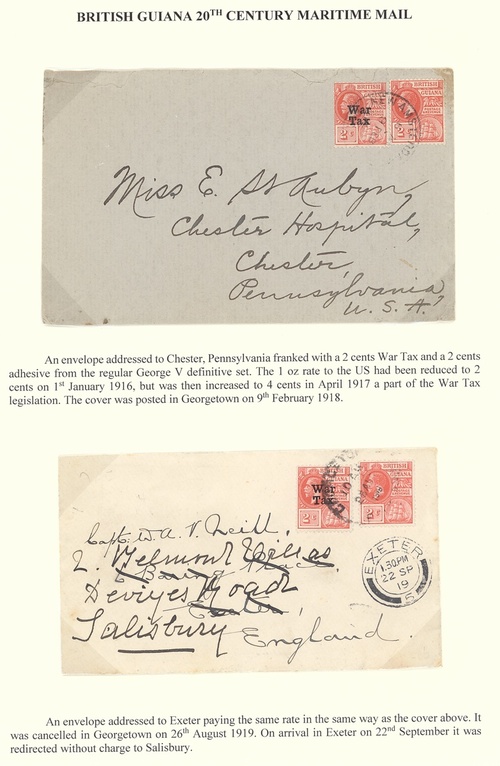 BRITISH GUIANA 20TH CENTURY MARITIME MAIL
BRITISH GUIANA
BRITISH GUIANA
War
Tax
2
2
Miss E. St Aubyn,
Chester Hospital,
Chester,
Pennsylvania
U. S. A.
An envelope addressed to Chester, Pennsylvania franked with a 2 cents War Tax and a 2 cents
adhesive from the regular George V definitive set. The 1 oz rate to the US had been reduced to 2
cents on 1st January 1916, but was then increased to 4 cents in April 1917 a part of the War Tax
legislation. The cover was posted in Georgetown on 9th February 1918.
BRITISH GUIANA
War
Tax
2
2
EXETER
1.30PM
22 SP
19
5
Capt. W. A. V. Neill,
2. Belmont Villas
Devizes Road
Exeter,
Salisbury
England.
An envelope addressed to Exeter paying the same rate in the same way as the cover above. It
was cancelled in Georgetown on 26th August 1919. On arrival in Exeter on 22nd September it was
redirected without charge to Salisbury.